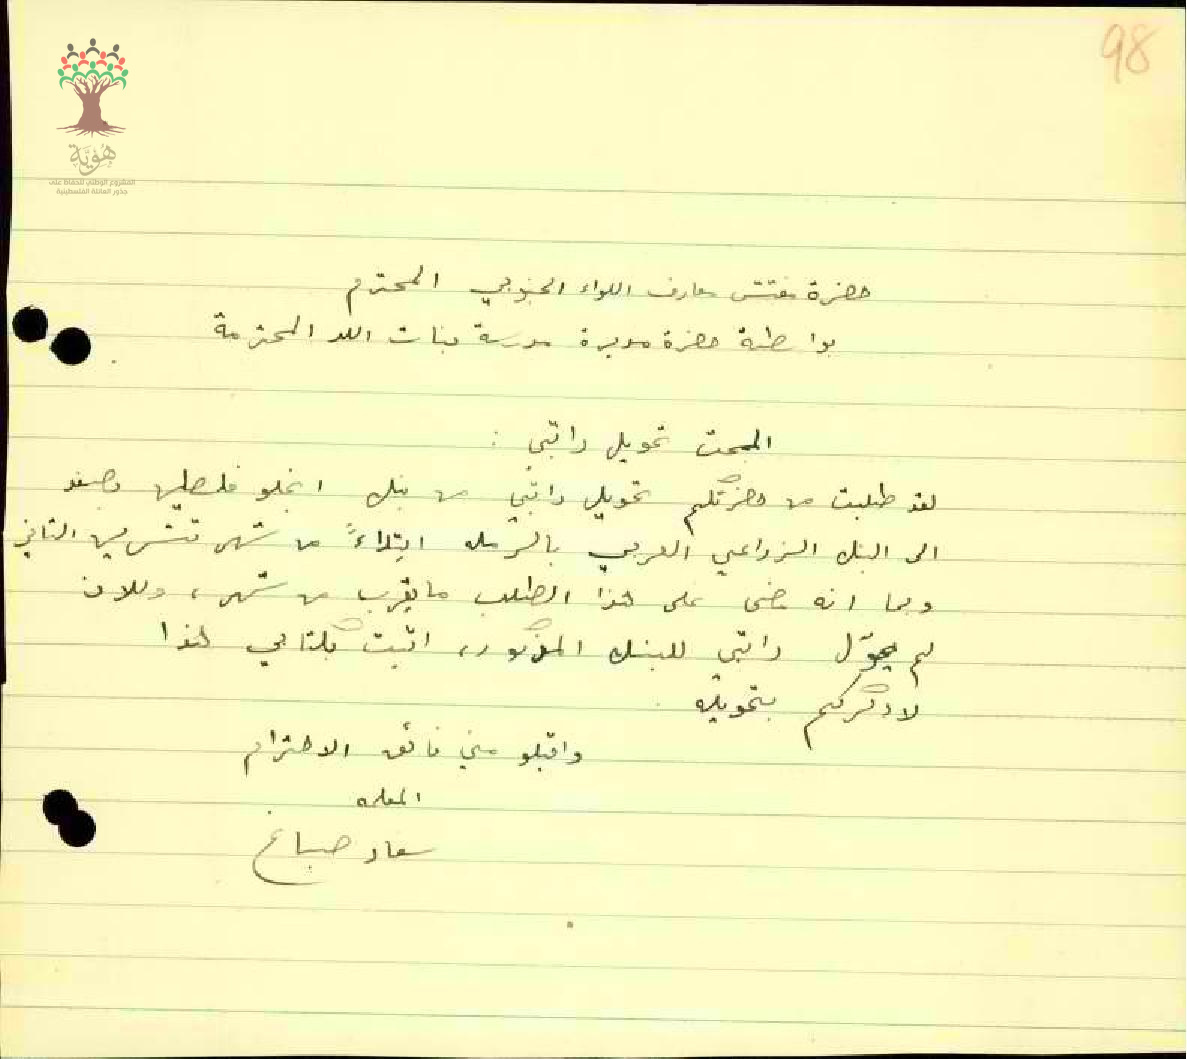 98
هُوِيَّة
المشروع الوطني للحفاظ على
جذور العائلة الفلسطينية
حضرة مفتش معارف اللواء الجنوبي المحترم
بواسطة حضرة مديرة مدرسة بنات اللد المحترمة
المبحث تحويل راتبي :
لقد طلبت من حضرتكم تحويل راتبي من بنك انجلو فلسطين بصفد
الى البنك الزراعي العربي بالرمله ابتداءً من شهر تشرين الثاني
وبما انه مضى على هذا الطلب ما يقرب من شهر، وللان
لم يحوّل راتبي للبنك المذكور، اتيت بكتابي هذا
لاذكركم بتحويله .
واقبلو مني فائق الاحترام
المعلمه
سعاد صباغ